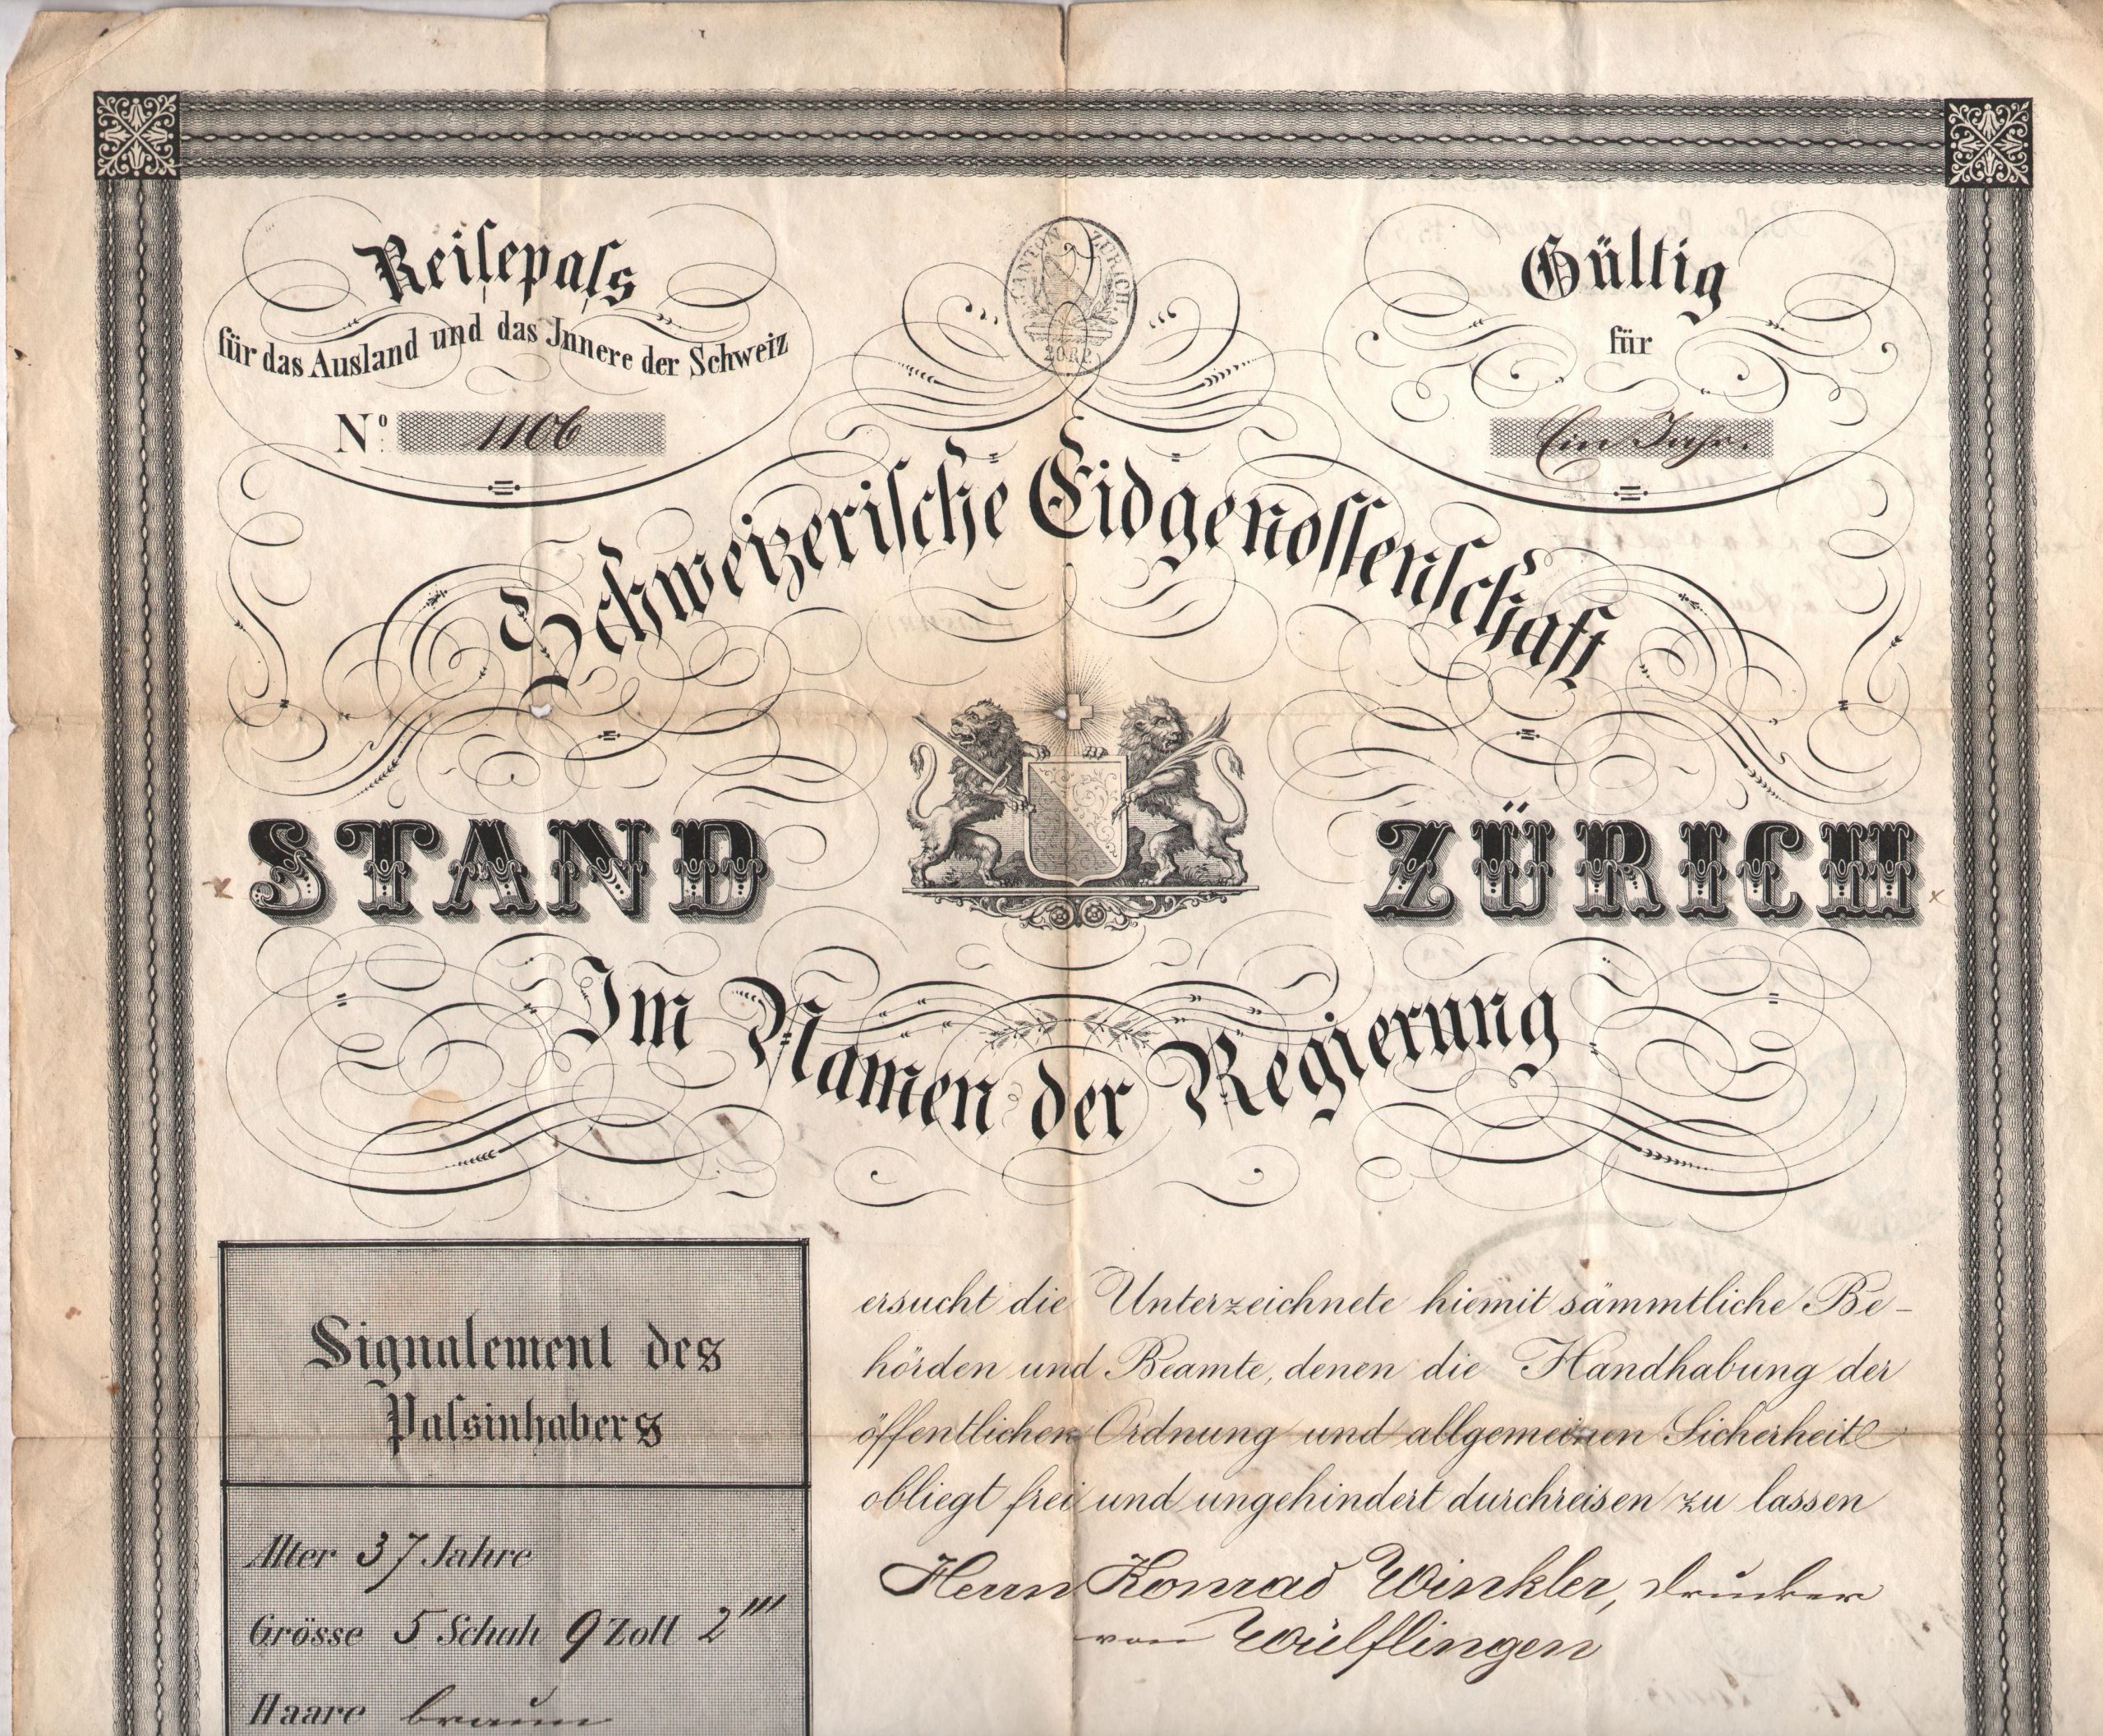 Reiſepaſs
für das Ausland und das Innere der Schweiz
Nº 1106
CANTON ZÜRICH.
20 RP.
Gültig
für
Ein Jahr.
Schweizeriſche Eidgenoſſenſchaft
STAND ZÜRICH
Im Namen der Regierung
Signalement des
Paſsinhabers
Alter 37 Jahre
Grösse 5 Schuh 9 Zoll 2'''
Haare braun
ersucht die Unterzeichnete hiemit sämmtliche Be-
hörden und Beamte, denen die Handhabung der
öffentlichen Ordnung und allgemeinen Sicherheit
obliegt frei und ungehindert durchreisen zu lassen
Herrn Konrad Winkler, Drucker
von Wülflingen